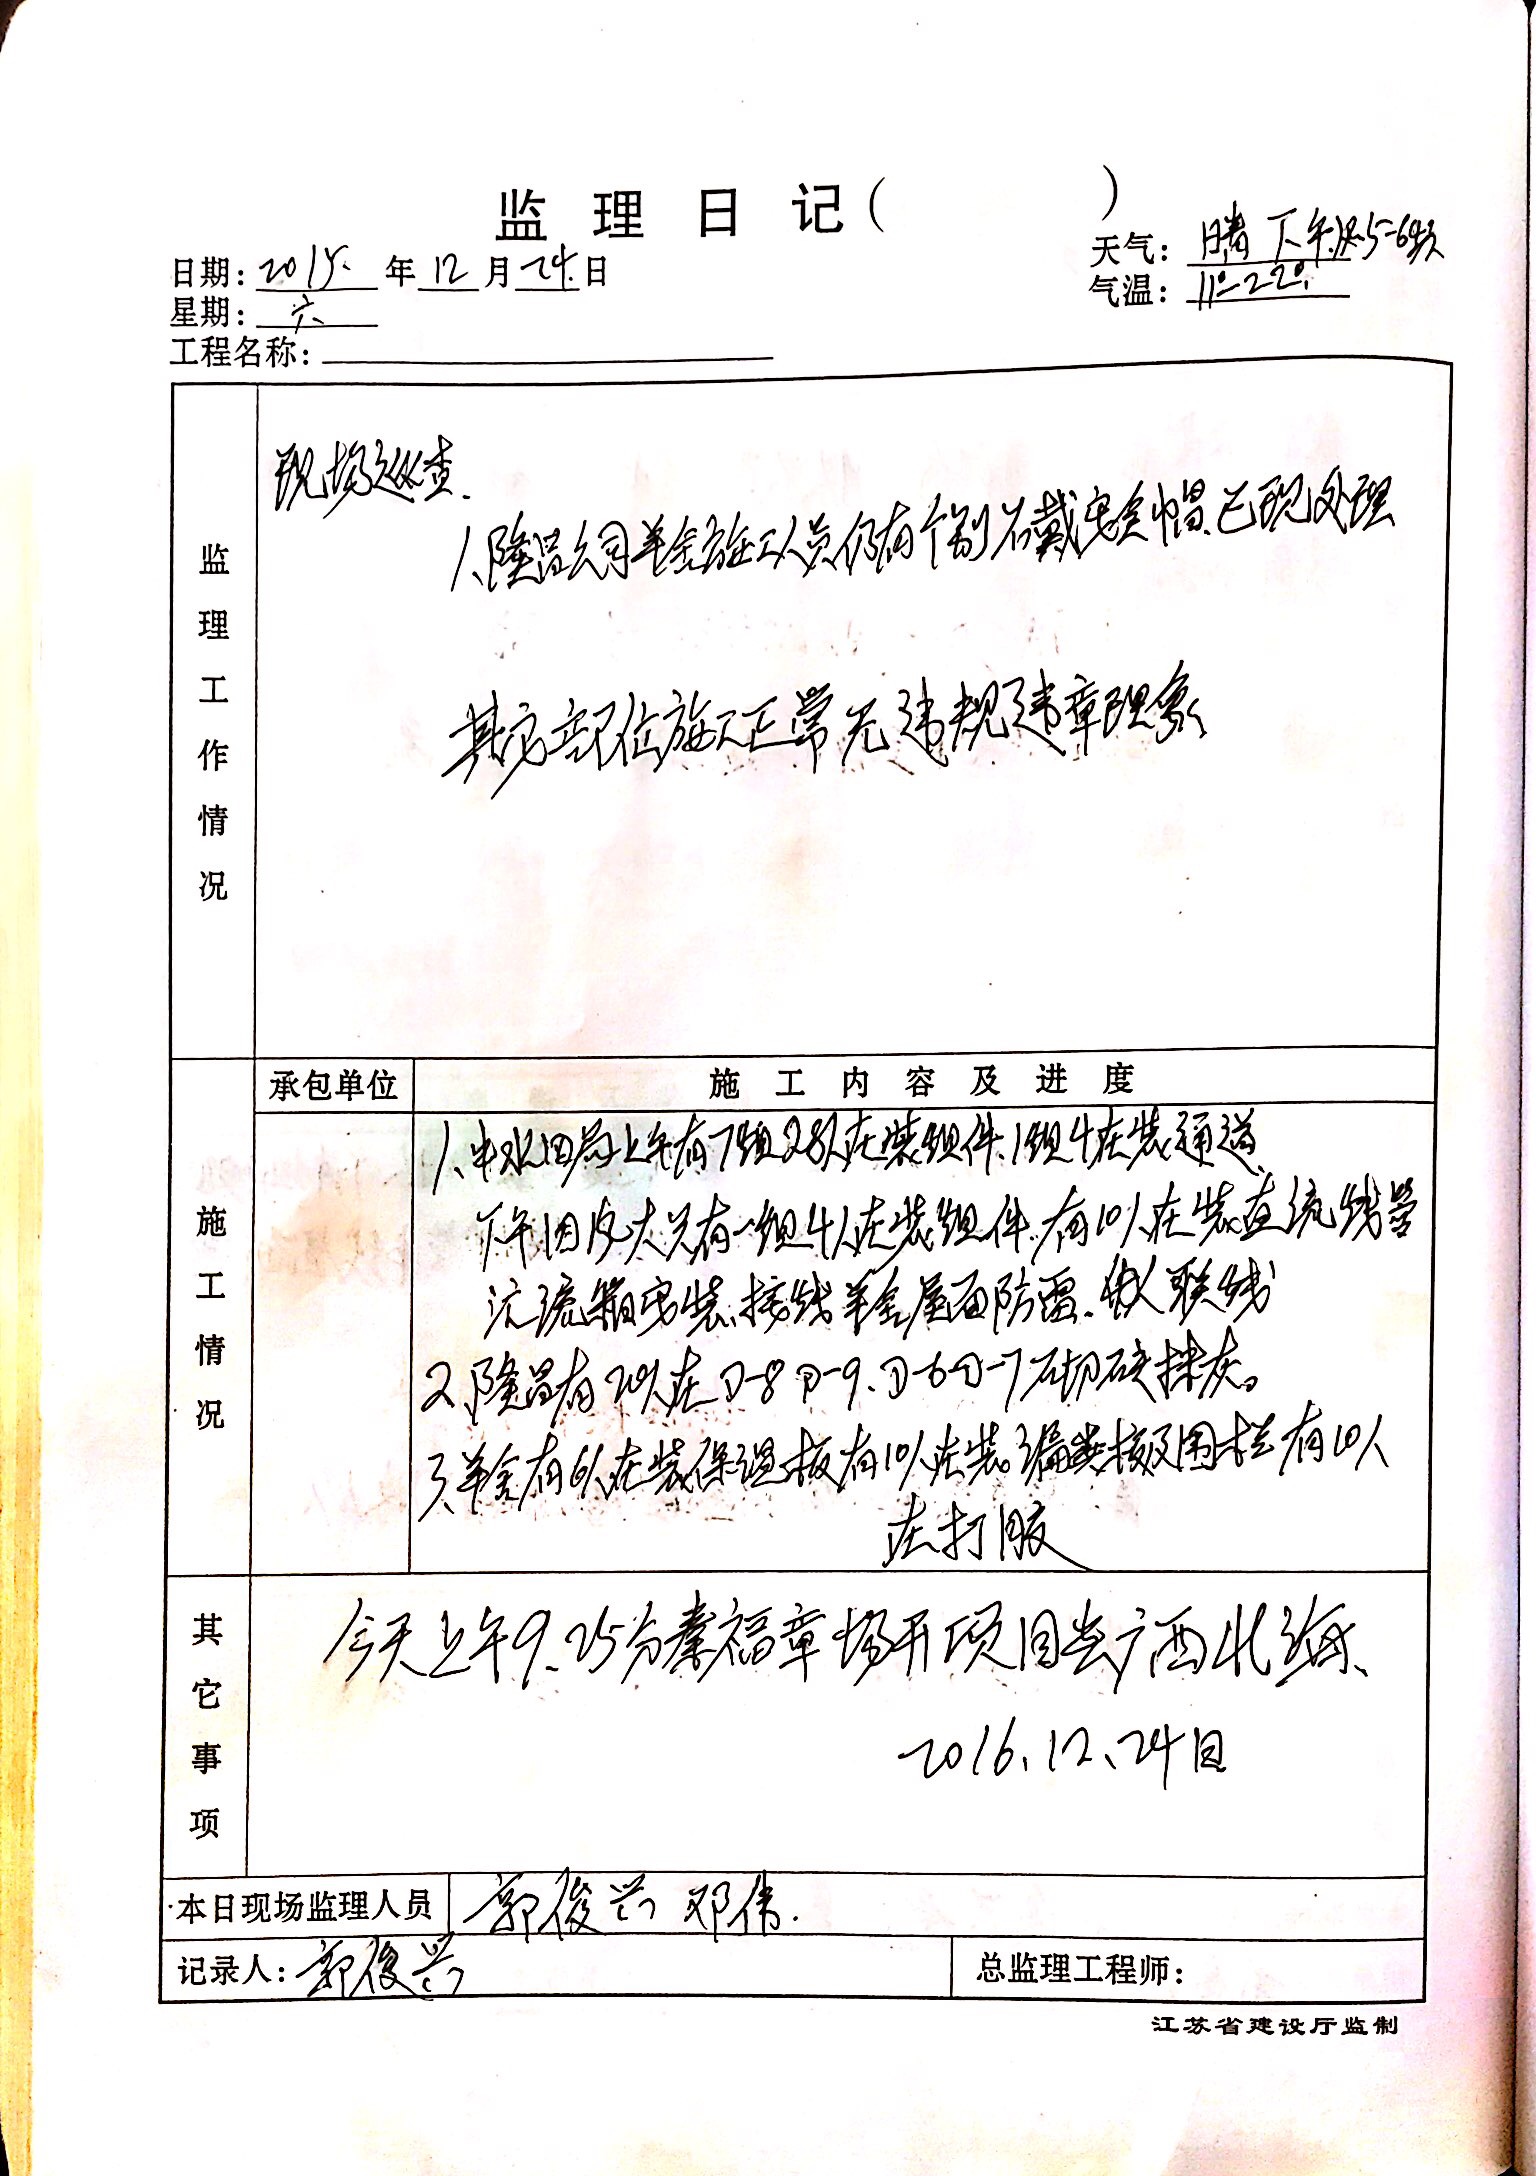 监理日记(　　　)
日期:2015.年12月24.日
天气:晴 下午风5-6级
星期:六
气温:11°-22°.
工程名称:
监理工作情况
现场巡查.
1、隆昌公司羊舍施工人员仍有个别不戴安全帽已现处理
其它部位施工正常无违规违章现象
施工情况
承包单位
施工内容及进度
1、中水四局上午有7组28人在装组件、1组4在装通道
下午因风大只有一组4人在装组件.有10人在装直流线管
汇流箱安装、接线羊舍屋面防雷、 联线
2、隆昌有20人在D-8 D-9、D-6 D-7 砌砖抹灰。
3、羊舍有6人在装保温板有10人在装 板及围栏有10人
在打胶
其它事项
今天上午9.25分秦福章场开项目去广西北海、
2016、12、24日
本日现场监理人员 郭俊兴 邓伟.
记录人:郭俊兴
总监理工程师:
江苏省建设厅监制